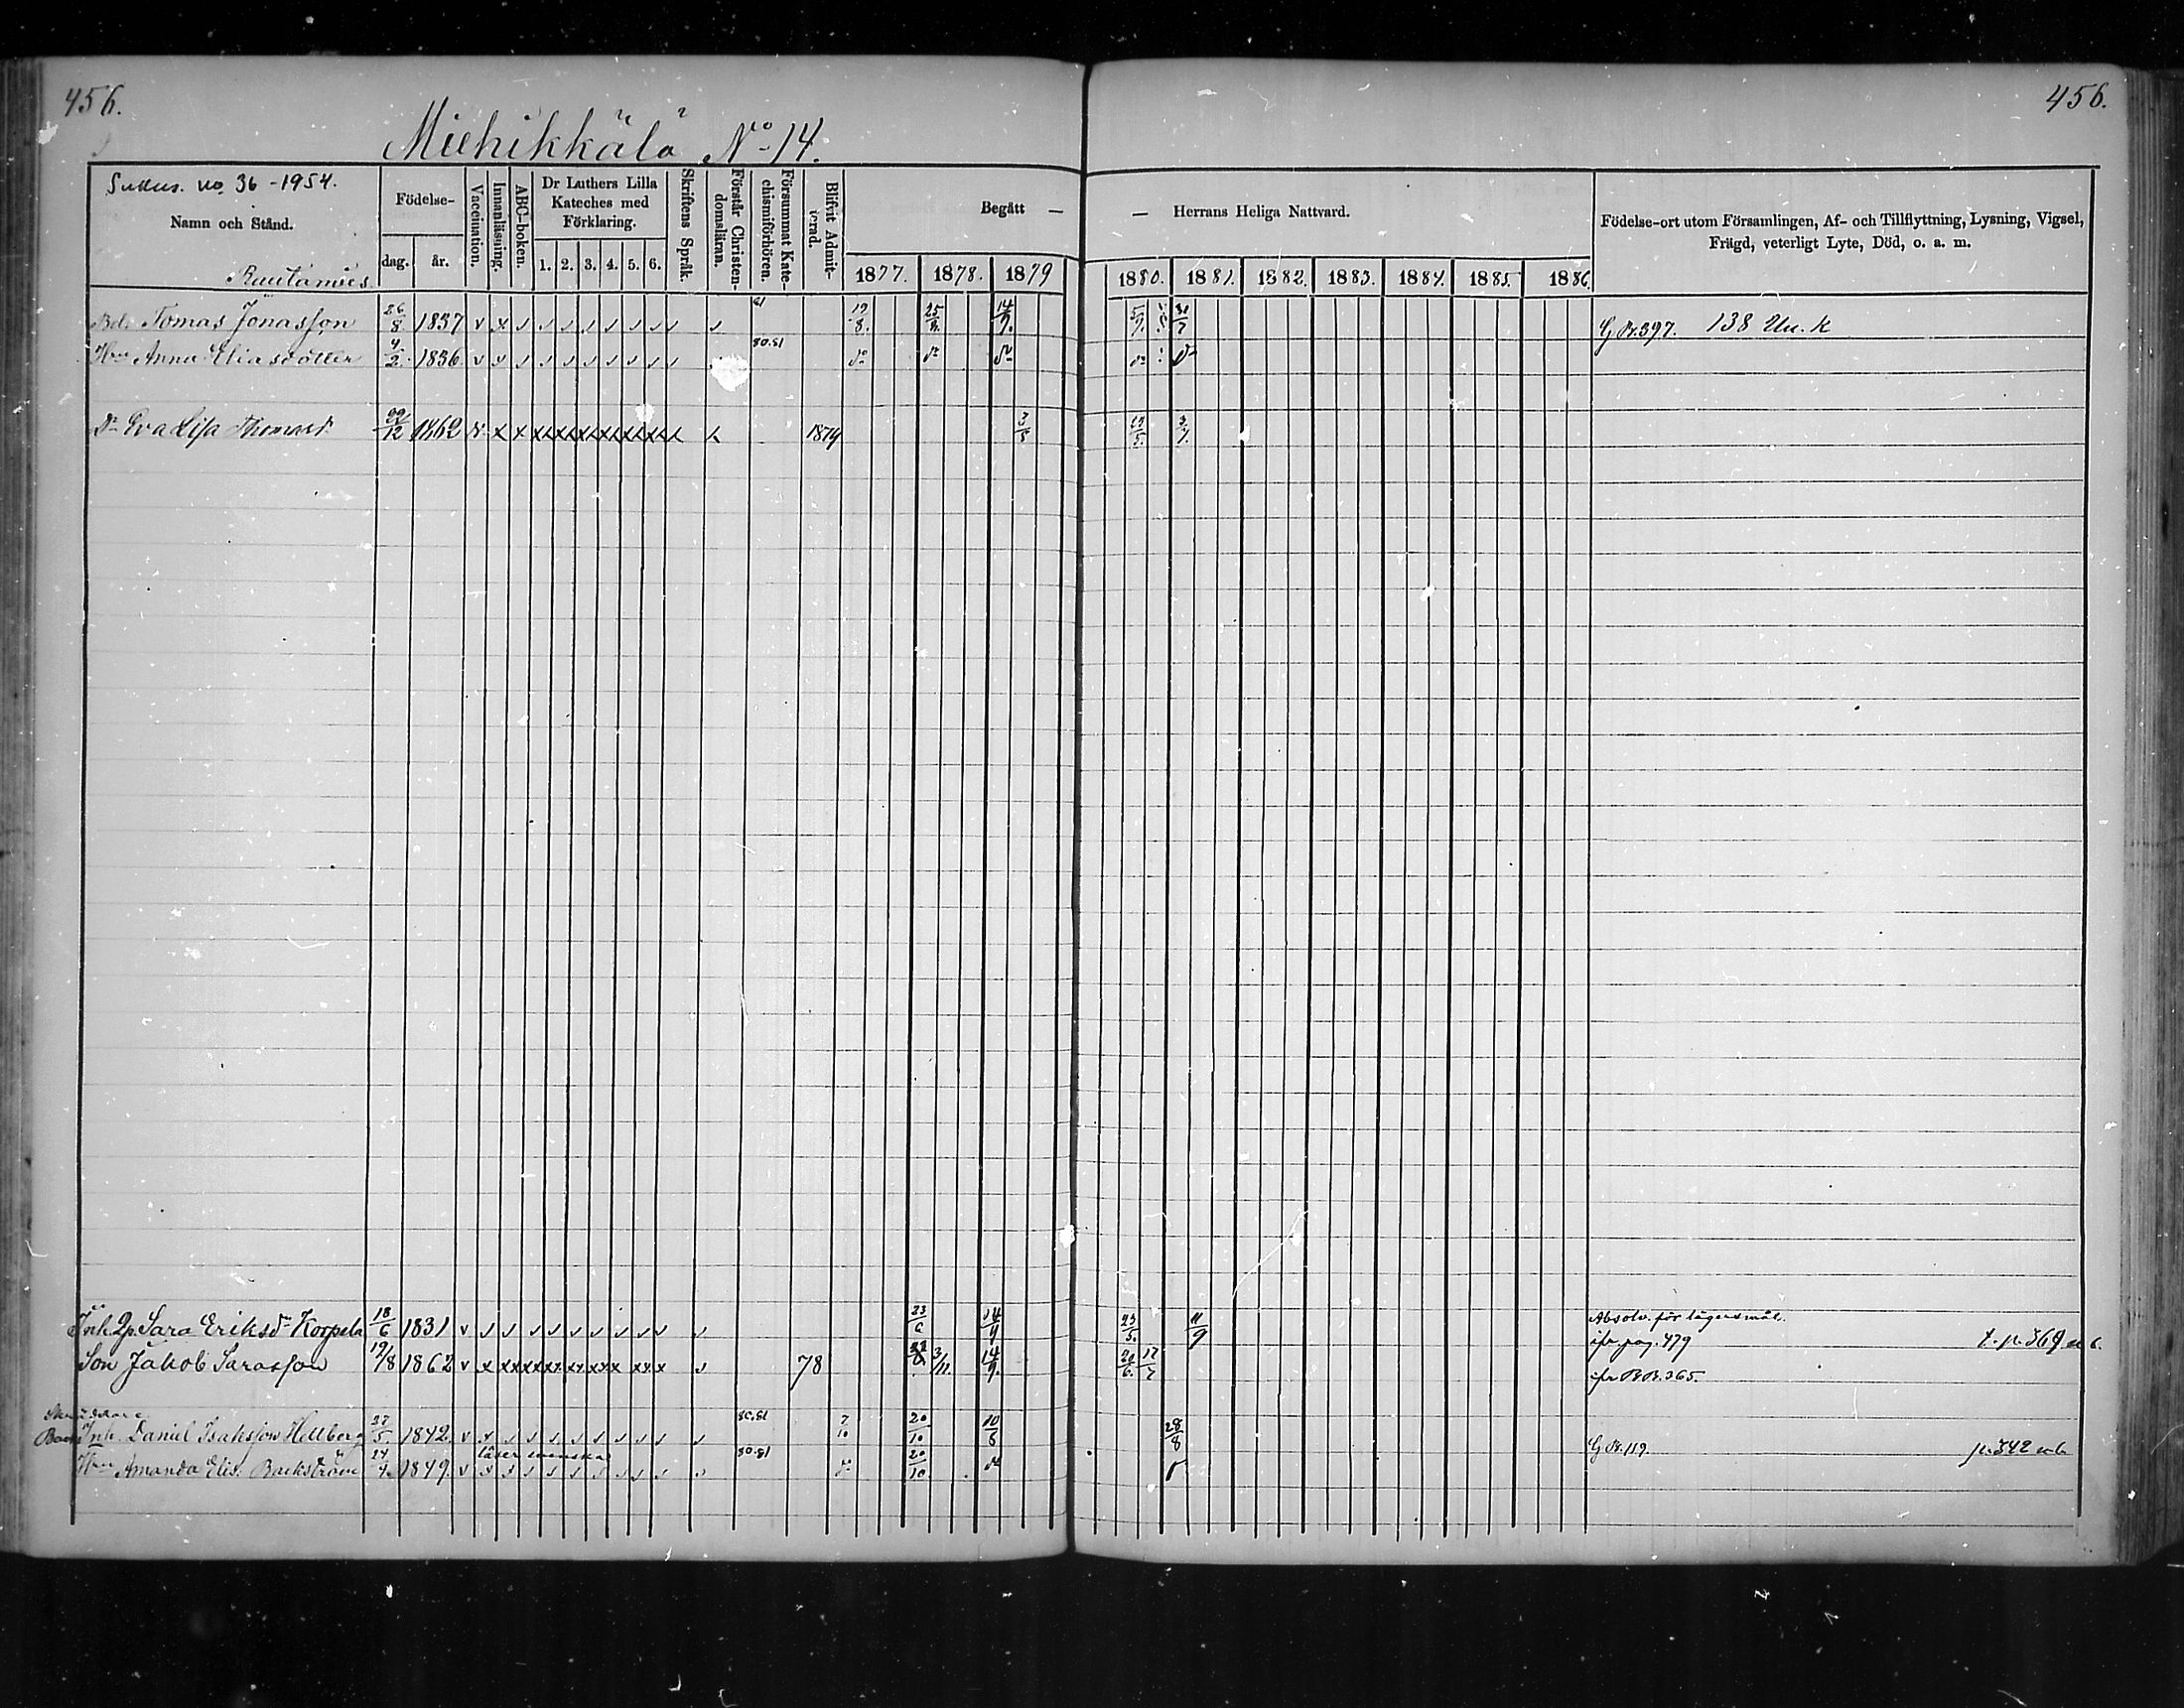 456.
456.
Miehikkälä No 14.
Sukus. no. 36 - 1954.
Namn och Stånd.
Födelse-
dag.
år.
Vaccination.
Innanläsning.
ABC-boken.
Dr Luthers Lilla Kateches med Förklaring.
1. 2. 3. 4. 5. 6.
Skriftens Språk.
Förstår Christen-domsläran.
Försummat Kate-chismiförhören.
Blifvit Admit-terad.
Begått — — Herrans Heliga Nattvard.
1877. 1878. 1879 1880. 1881. 1882. 1883. 1884. 1885. 1886.
Födelse-ort utom Församlingen, Af- och Tillflyttning, Lysning, Vigsel, Frägd, veterligt Lyte, Död, o. a. m.
Rautamies
Tomas Jonasson 26/8 1837 v x 81 19/8. 25/8. 14/9. 5/9. 31/7 G Br. 397. 138 Uu. K
Hru Anna Eliasdotter 4/2. 1836 80.81 do do do do
Dr Eva Lisa Thomasd 1862 1879 3/5 23/5. 3/7.
Inh. Qp. Sara Eriksdr Korpela 18/6 1831 v 23/6 14/9 23/5. 11/9 Absolv. för lägersmål.
ifr pag. 479 t. p. 369
Son Jakob Sarasson 19/8 1862 v x 78 3/11. 14/9. 20/6. 17/7 ifr BB. 365.
Inh. Daniel Isaksson Hellberg 27/5 1842. v 80.81 7/10 20/10 10/6 28/8 G Br. 119. p. 342
läser svenska
Hru Amanda Elis. Backström 24/4 1849. v 80.81 do 20/10 do